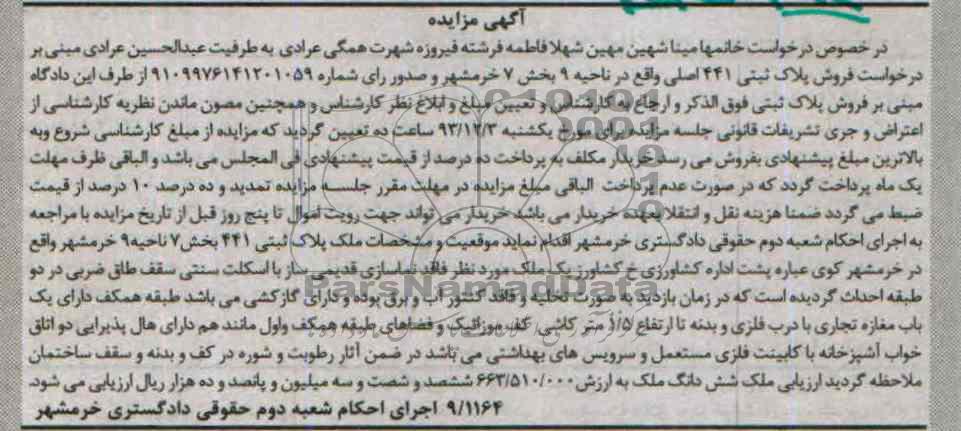 آگهی مزایده
در خصوص درخواست خانمها مینا شهین مهین شهلا فاطمه فرشته فیروزه شهرت همگی عرادی به طرفیت عبدالحسین عرادی مبنی بر
درخواست فروش پلاک ثبتی ۴۴۱ اصلی واقع در ناحیه ۹ بخش ۷ خرمشهر و صدور رای شماره ۹۱۰۹۹۷۶۱۴۱۲۰۱۰۵۹ از طرف این دادگاه
مبنی بر فروش پلاک ثبتی فوق الذکر و ارجاع به کارشناس و تعیین مبلغ و ابلاغ نظر کارشناس و همچنین مصون ماندن نظریه کارشناسی از
اعتراض و جری تشریفات قانونی جلسه مزایده برای مورخ یکشنبه ۹۳/۱۲/۳ ساعت ده تعیین گردید که مزایده از مبلغ کارشناسی شروع وبه
بالاترین مبلغ پیشنهادی بفروش می رسد خریدار مکلف به پرداخت ده درصد از قیمت پیشنهادی فی المجلس می باشد و الباقی ظرف مهلت
یک ماه پرداخت گردد که در صورت عدم پرداخت الباقی مبلغ مزایده در مهلت مقرر جلسه مزایده تمدید و ده درصد ۱۰ درصد از قیمت
ضبط می گردد ضمنا هزینه نقل و انتقلا بعهده خریدار می باشد خریدار می تواند جهت رویت اموال تا پنج روز قبل از تاریخ مزایده با مراجعه
به اجرای احکام شعبه دوم حقوقی دادگستری خرمشهر اقدام نماید موقعیت و مشخصات ملک پلاک ثبتی ۴۴۱ بخش۷ ناحیه۹ خرمشهر واقع
در خرمشهر کوی عباره پشت اداره کشاورزی خ کشاورز یک ملک مورد نظر فاقد نماسازی قدیمی ساز با اسکلت سنتی سقف طاق ضربی در دو
طبقه احداث گردیده است که در زمان بازدید به صورت تخلیه و فاقد کنتور آب و برق بوده و دارای گازکشی می باشد طبقه همکف دارای یک
باب مغازه تجاری با درب فلزی و بدنه تا ارتفاع ۱/۵ متر کاشی کف موزائیک و فضاهای طبقه همکف واول مانند هم دارای هال پذیرایی دو اتاق
خواب آشپزخانه با کابینت فلزی مستعمل و سرویس های بهداشتی می باشد در ضمن آثار رطوبت و شوره در کف و بدنه و سقف ساختمان
ملاحظه گردید ارزیابی ملک شش دانگ ملک به ارزش ۶۶۳/۵۱۰/۰۰۰ ششصد و شصت و سه میلیون و پانصد و ده هزار ریال ارزیابی می شود.
۹/۱۱۶۴ اجرای احکام شعبه دوم حقوقی دادگستری خرمشهر
ParsNamadData